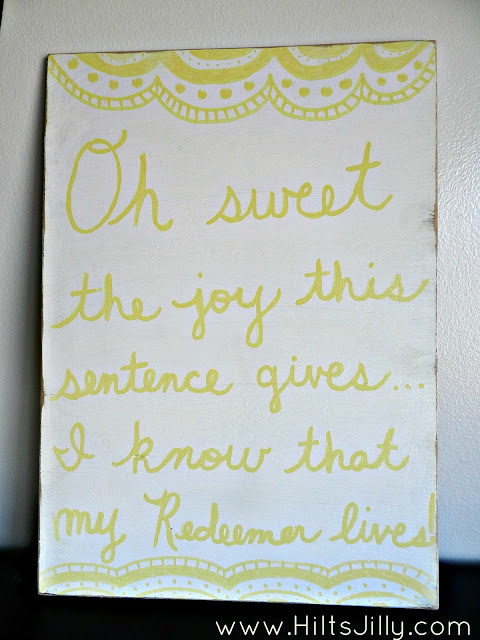 Oh sweet
the joy this
sentence gives...
I know that
my Redeemer lives!
www.HiltsJilly.com